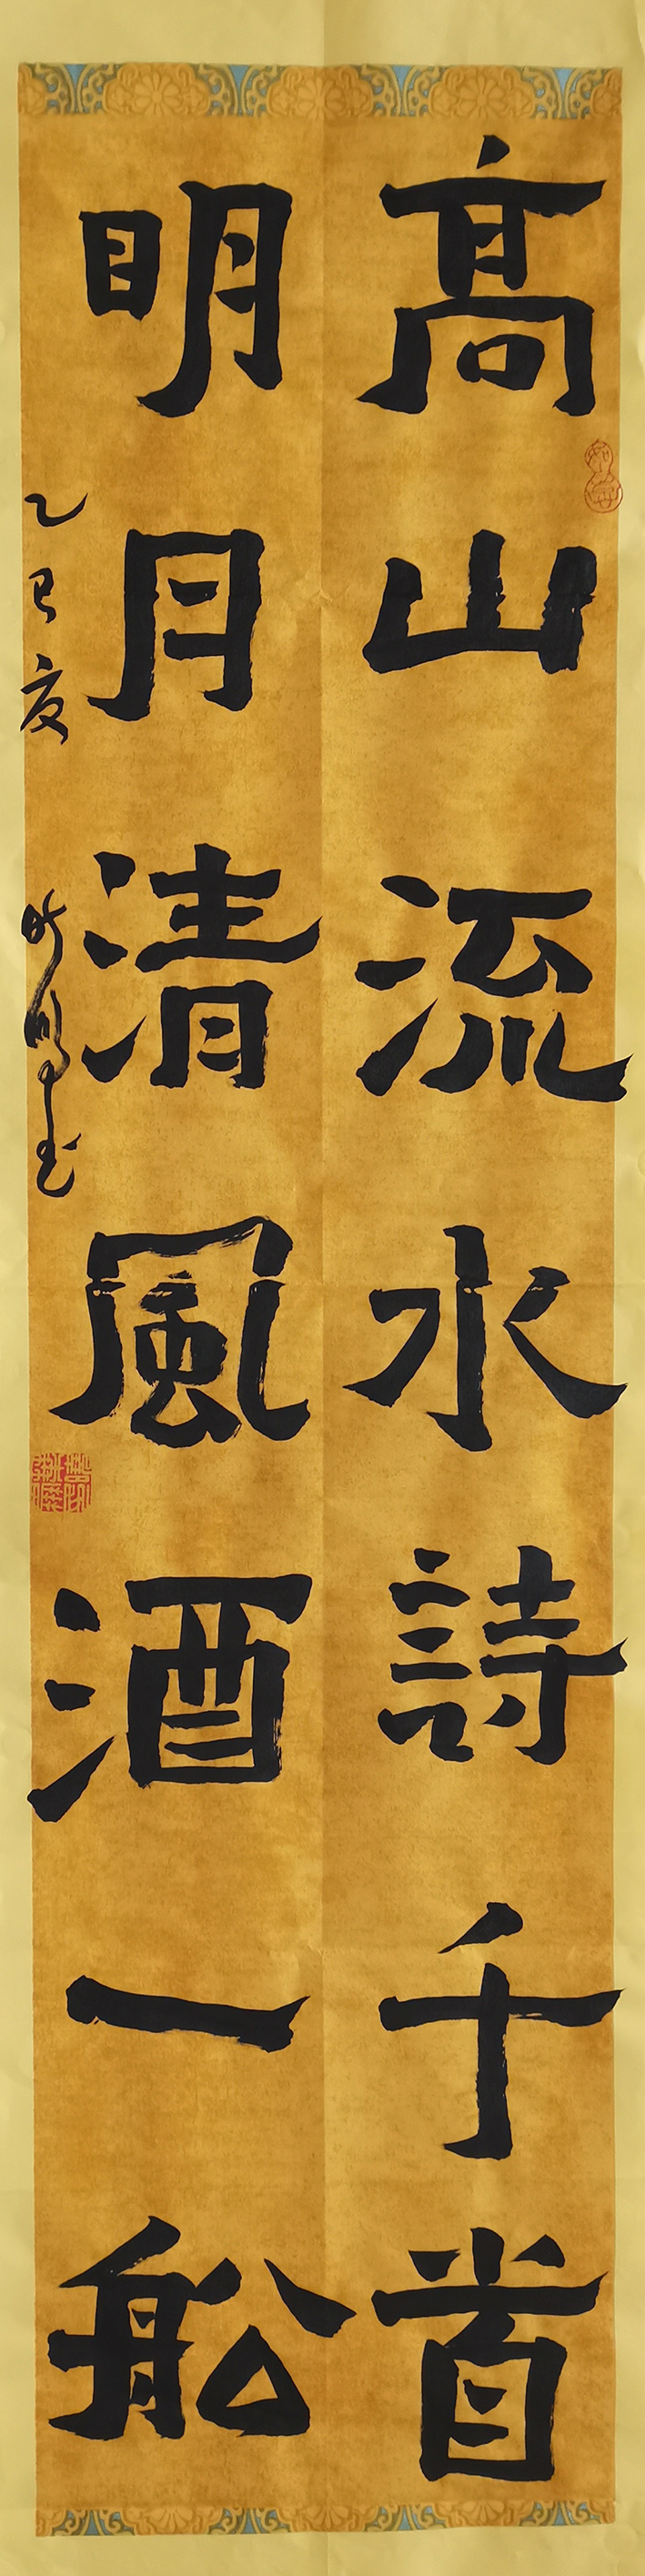 高山流水詩千首
明月清風酒一船
乙巳夏